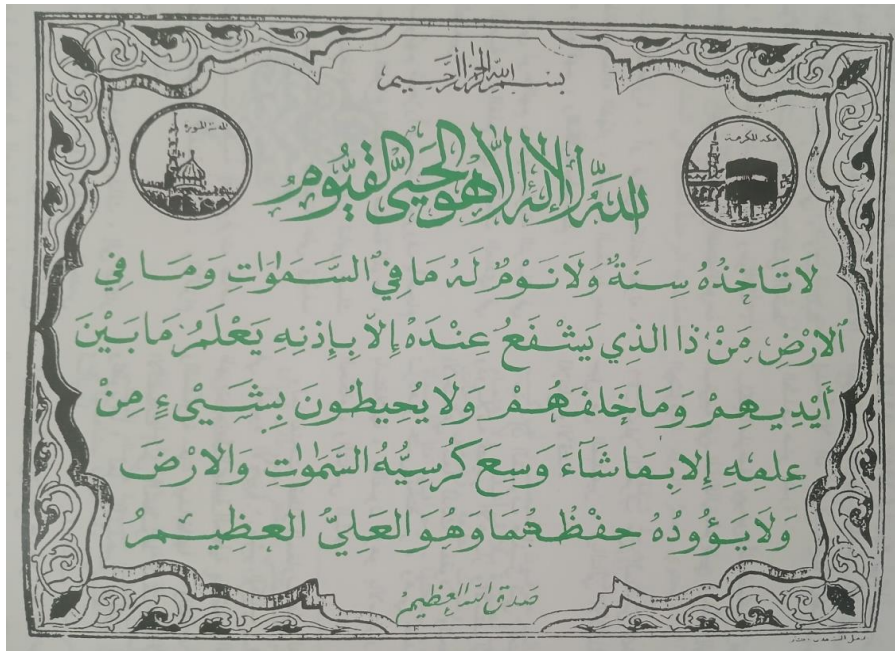 بسم الله الرحمن الرحيم
المدينة المنورة
مكة المكرمة
الله لا إله إلا هو الحي القيوم
لَا تَاخُذُهُ سِنَةٌ وَلَا نَوْمٌ لَهُ مَا فِي السَّمَاوَاتِ وَمَا فِي
الارْضِ مَنْ ذَا الذِي يَشْفَعُ عِنْدَهُ إِلاَّ بِإِذنِهِ يَعْلَمُ مَا بَيْنَ
أَيْدِيهِمْ وَمَا خَلفَهُمْ وَلَا يُحِيطُونَ بِشَيْءٍ مِنْ
عِلمِهِ إِلا بِمَا شَاءَ وَسِعَ كُرْسِيُّهُ السَّمَوَاتِ وَالارْضَ
وَلَا يَؤُودُهُ حِفْظُهُمَا وَهُوَ العَلِيُّ العَظِيمُ
صدق الله العظيم